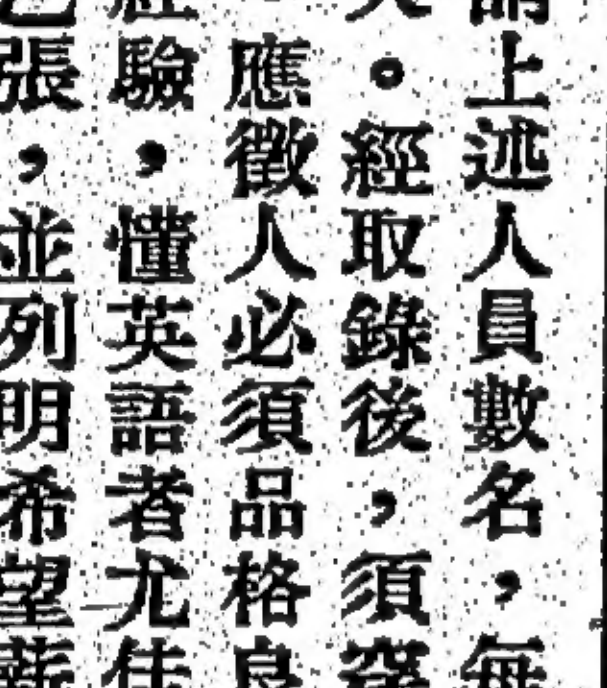 上述人員數名,每
。經取錄後,須
應徵人必須品格良
驗,懂英語者尤佳
張,並列明希望薪